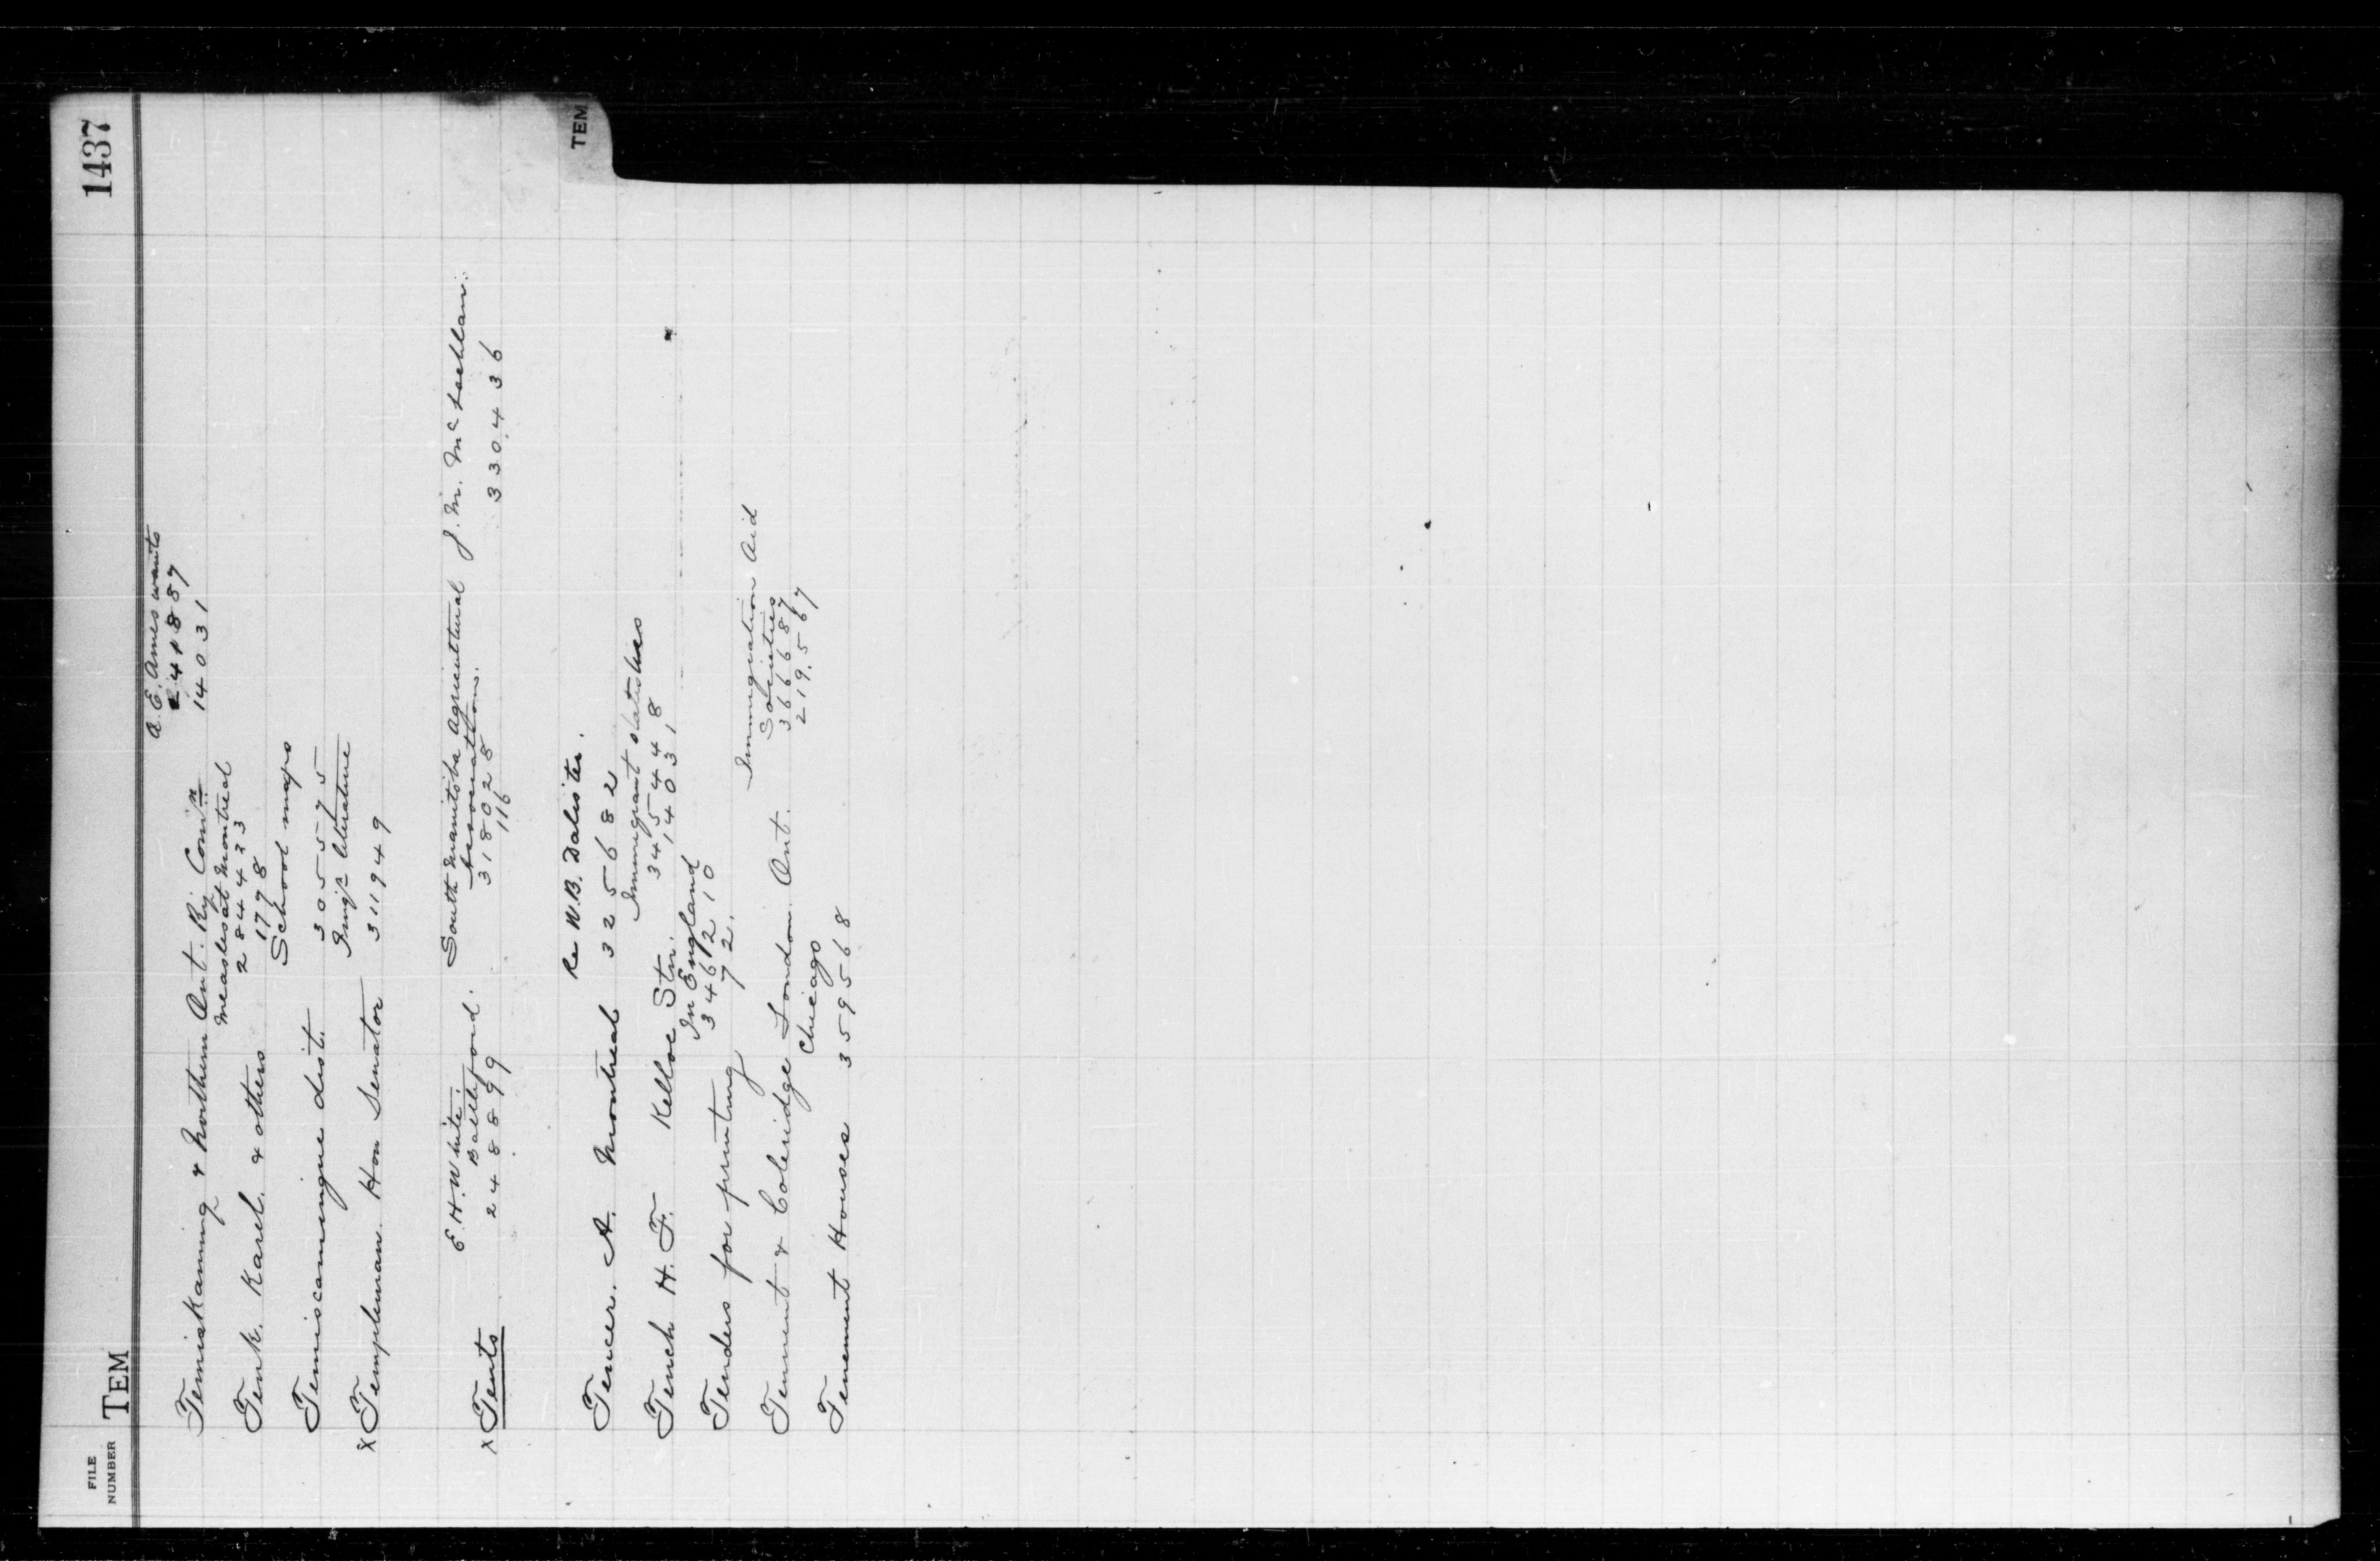 1437
FILE NUMBER
TEM
TEM
A. E. Ames wants
241887
Temiskaming & Northern Ont. Ry. Comn
14031
measles at Montreal
Tenk. Karel. & others
284433
1778
School maps
Temiscamingue dist.
305575
Imgn literature
x Templeman. Hon Senator 311949
E. H. White.
Battleford.
South Manitoba Agricultural
Association.
J. M. McLachlan.
x Tents
248899
318028
116
330436
Re W. B. Dalister.
Tencer. A. Montreal 325682
Immigrant statistics
Tench H. F. Kelloe Stn.
345448
14031
In England
346210
Tenders for printing 72.
Immigration Aid
Societies
Tennent & Coleridge London. Ont.
366687
219567
Chicago
Tenement Houses 359568